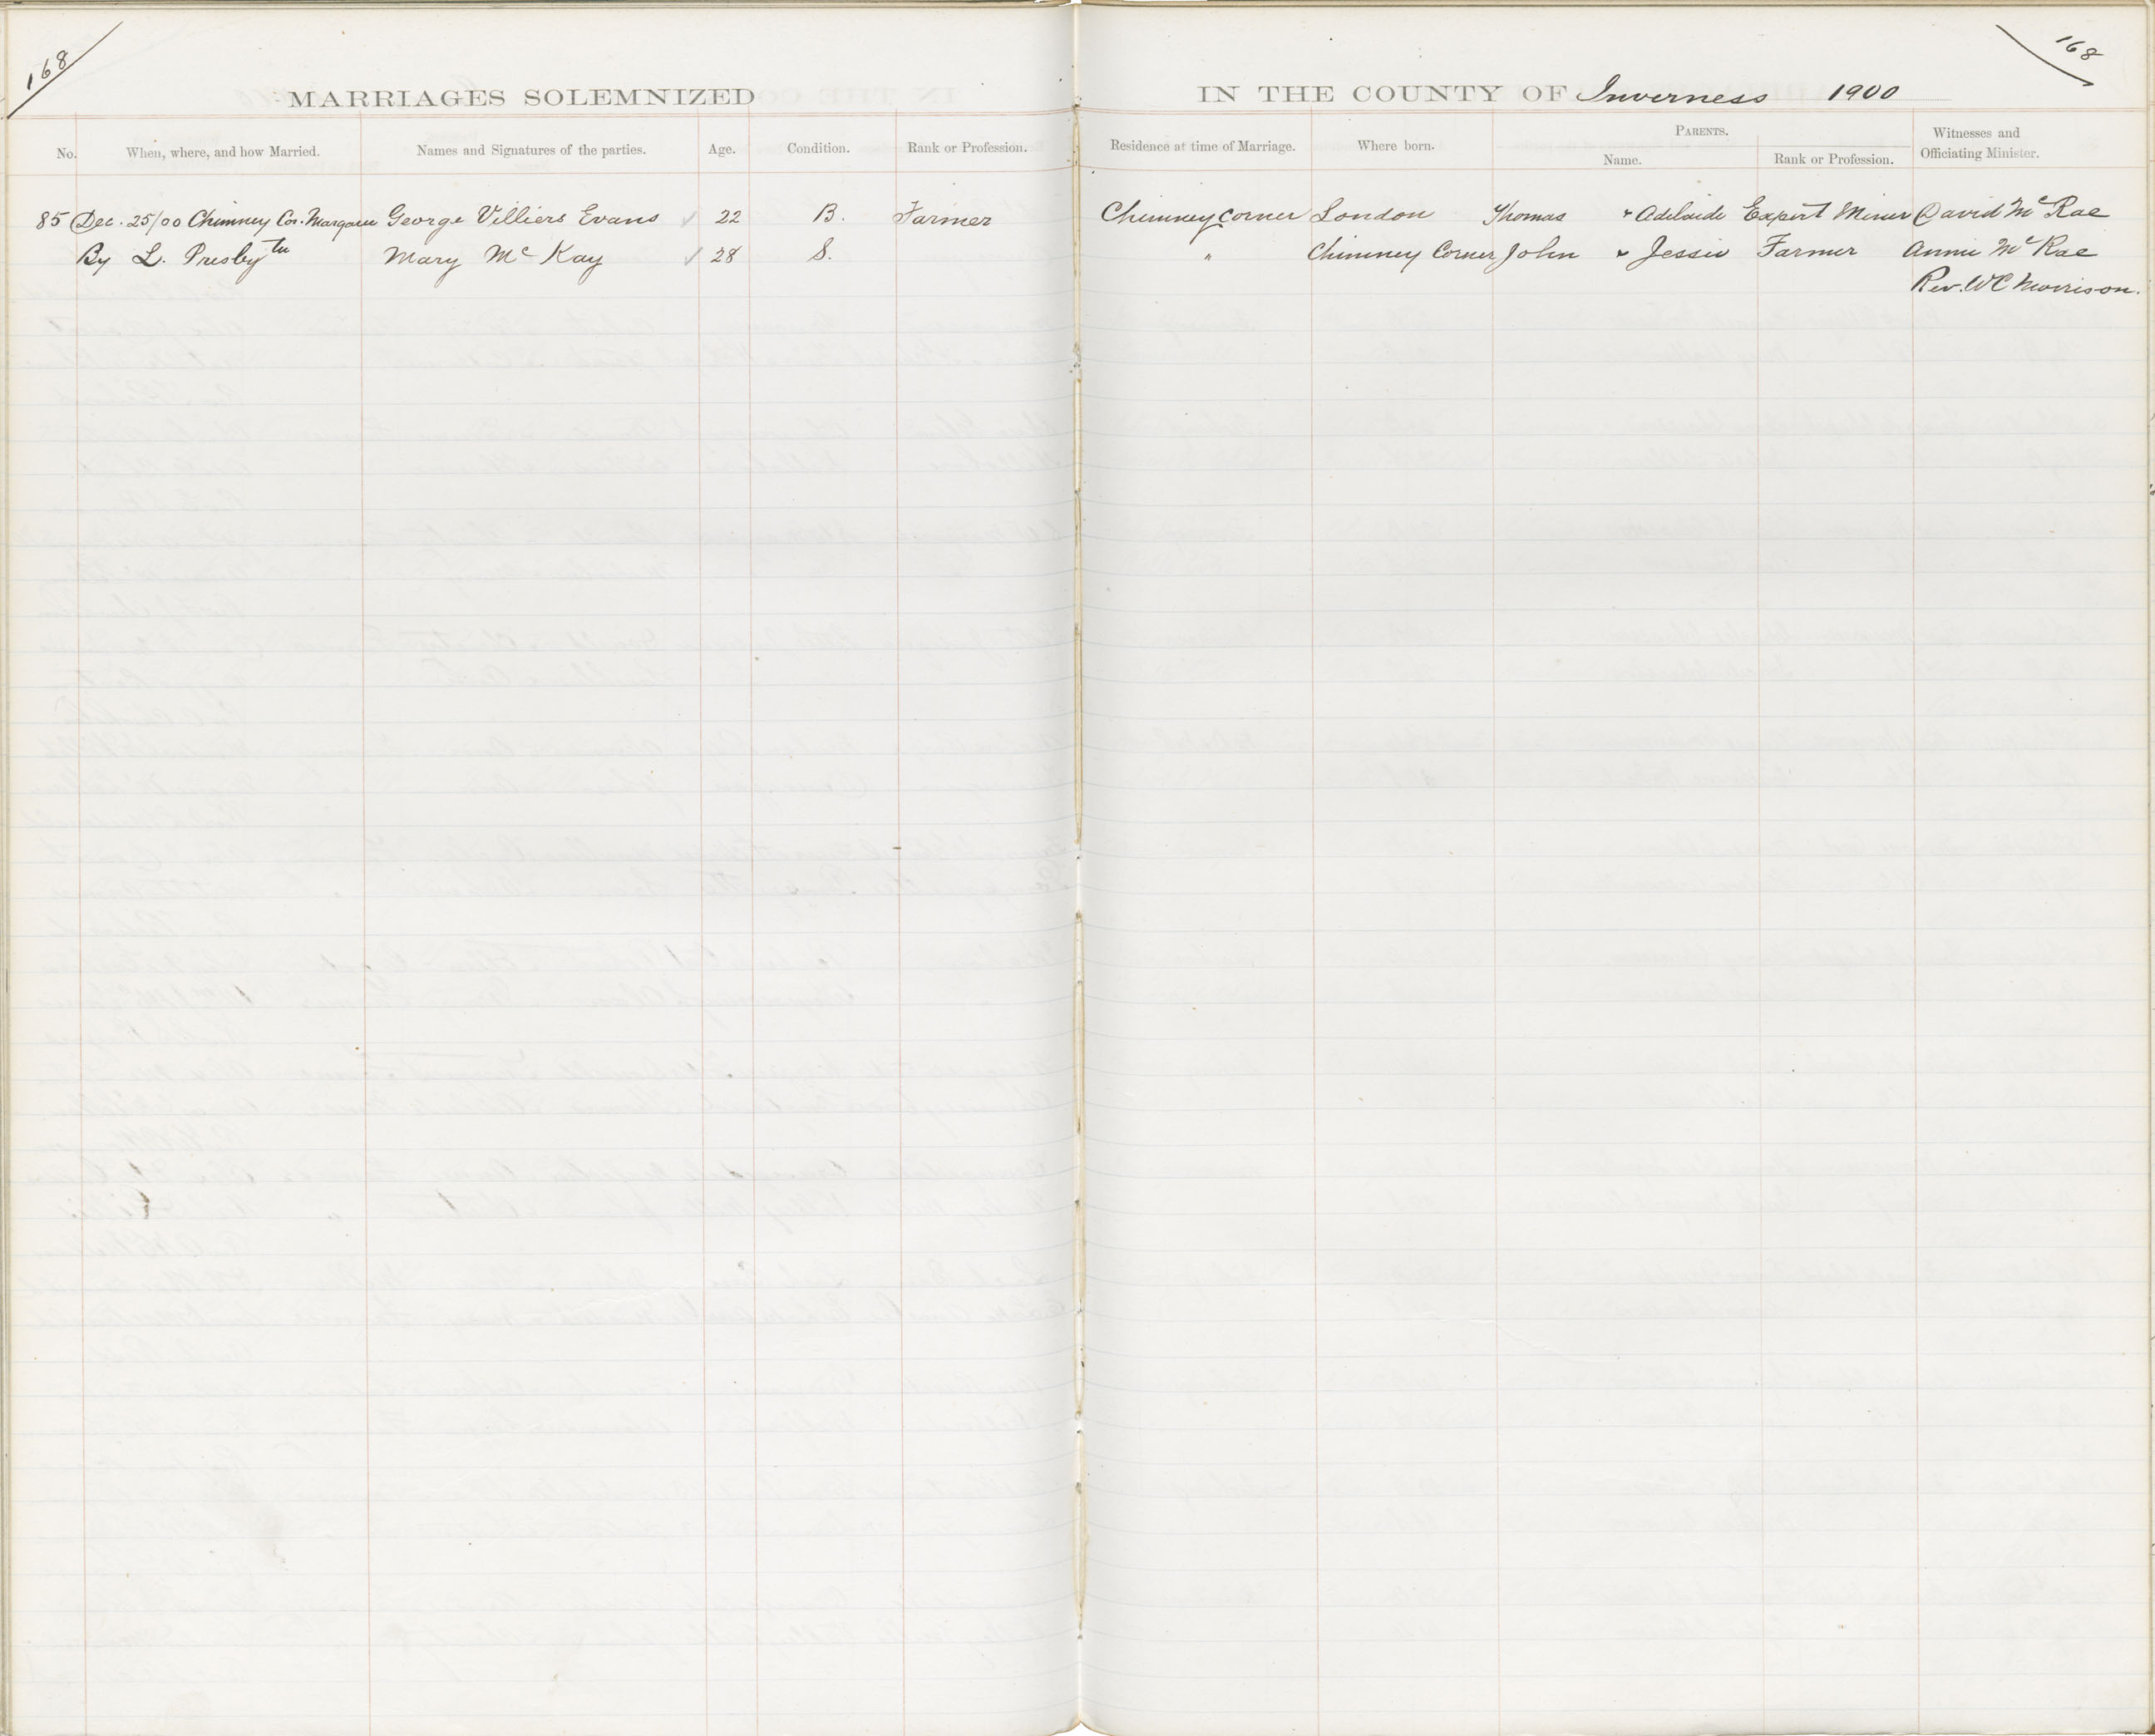 168
168
MARRIAGES SOLEMNIZED IN THE COUNTY OF Inverness 1900
No. When, where, and how Married. Names and Signatures of the parties. Age. Condition. Rank or Profession. Residence at time of Marriage. Where born. PARENTS. Name. Rank or Profession. Witnesses and Officiating Minister.
85 Dec. 25/00 Chimney Cor. Margaree George Villiers Evans 22 B. Farmer Chimney Corner London Thomas & Adelaide Expert Miner David McRae
By L. Presbytn Mary McKay 28 S. " Chimney Corner John & Jessie Farmer Annie McRae
Rev. WC Morrison.